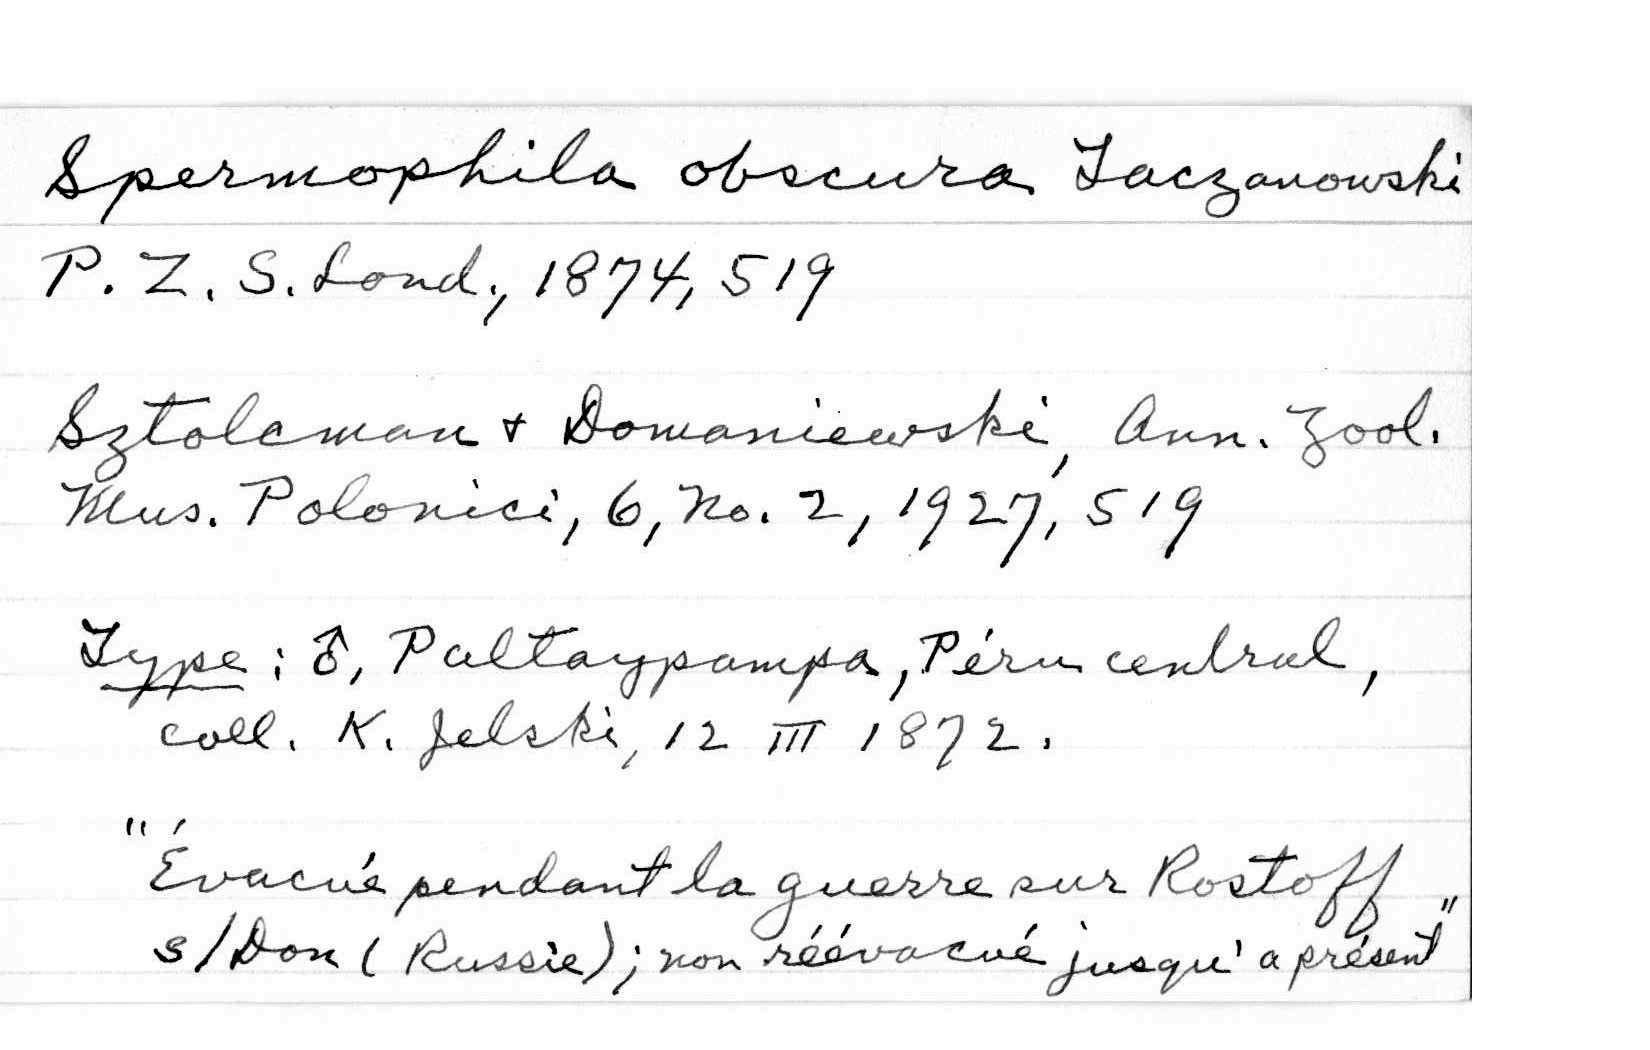 Spermophila obscura Taczanowski
P. Z. S. Lond., 1874, 519
Sztolcman & Domaniewski, Ann. Zool.
Mus. Polonici, 6, No. 2, 1927, 519
Type: ♂, Paltaypampa, Péru central,
coll. K. Jelski, 12 III 1872.
"Évacué pendant la guerre sur Rostoff
s/Don (Russie); non réévacué jusqu'a présent"